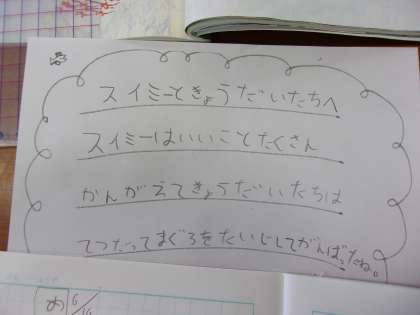 スイミーときょうだいたちへ
スイミーはいいことたくさん
かんがえてきょうだいたちは
てつだってまぐろをたいじしてがんばったね。
め 6/16